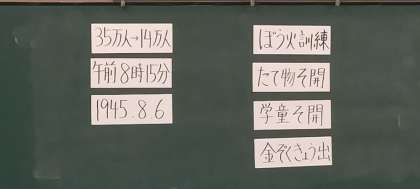 35万人→14万人
午前8時15分
1945.8 6
ぼう火訓練
たて物そ開
学童そ開
金ぞくきょう出